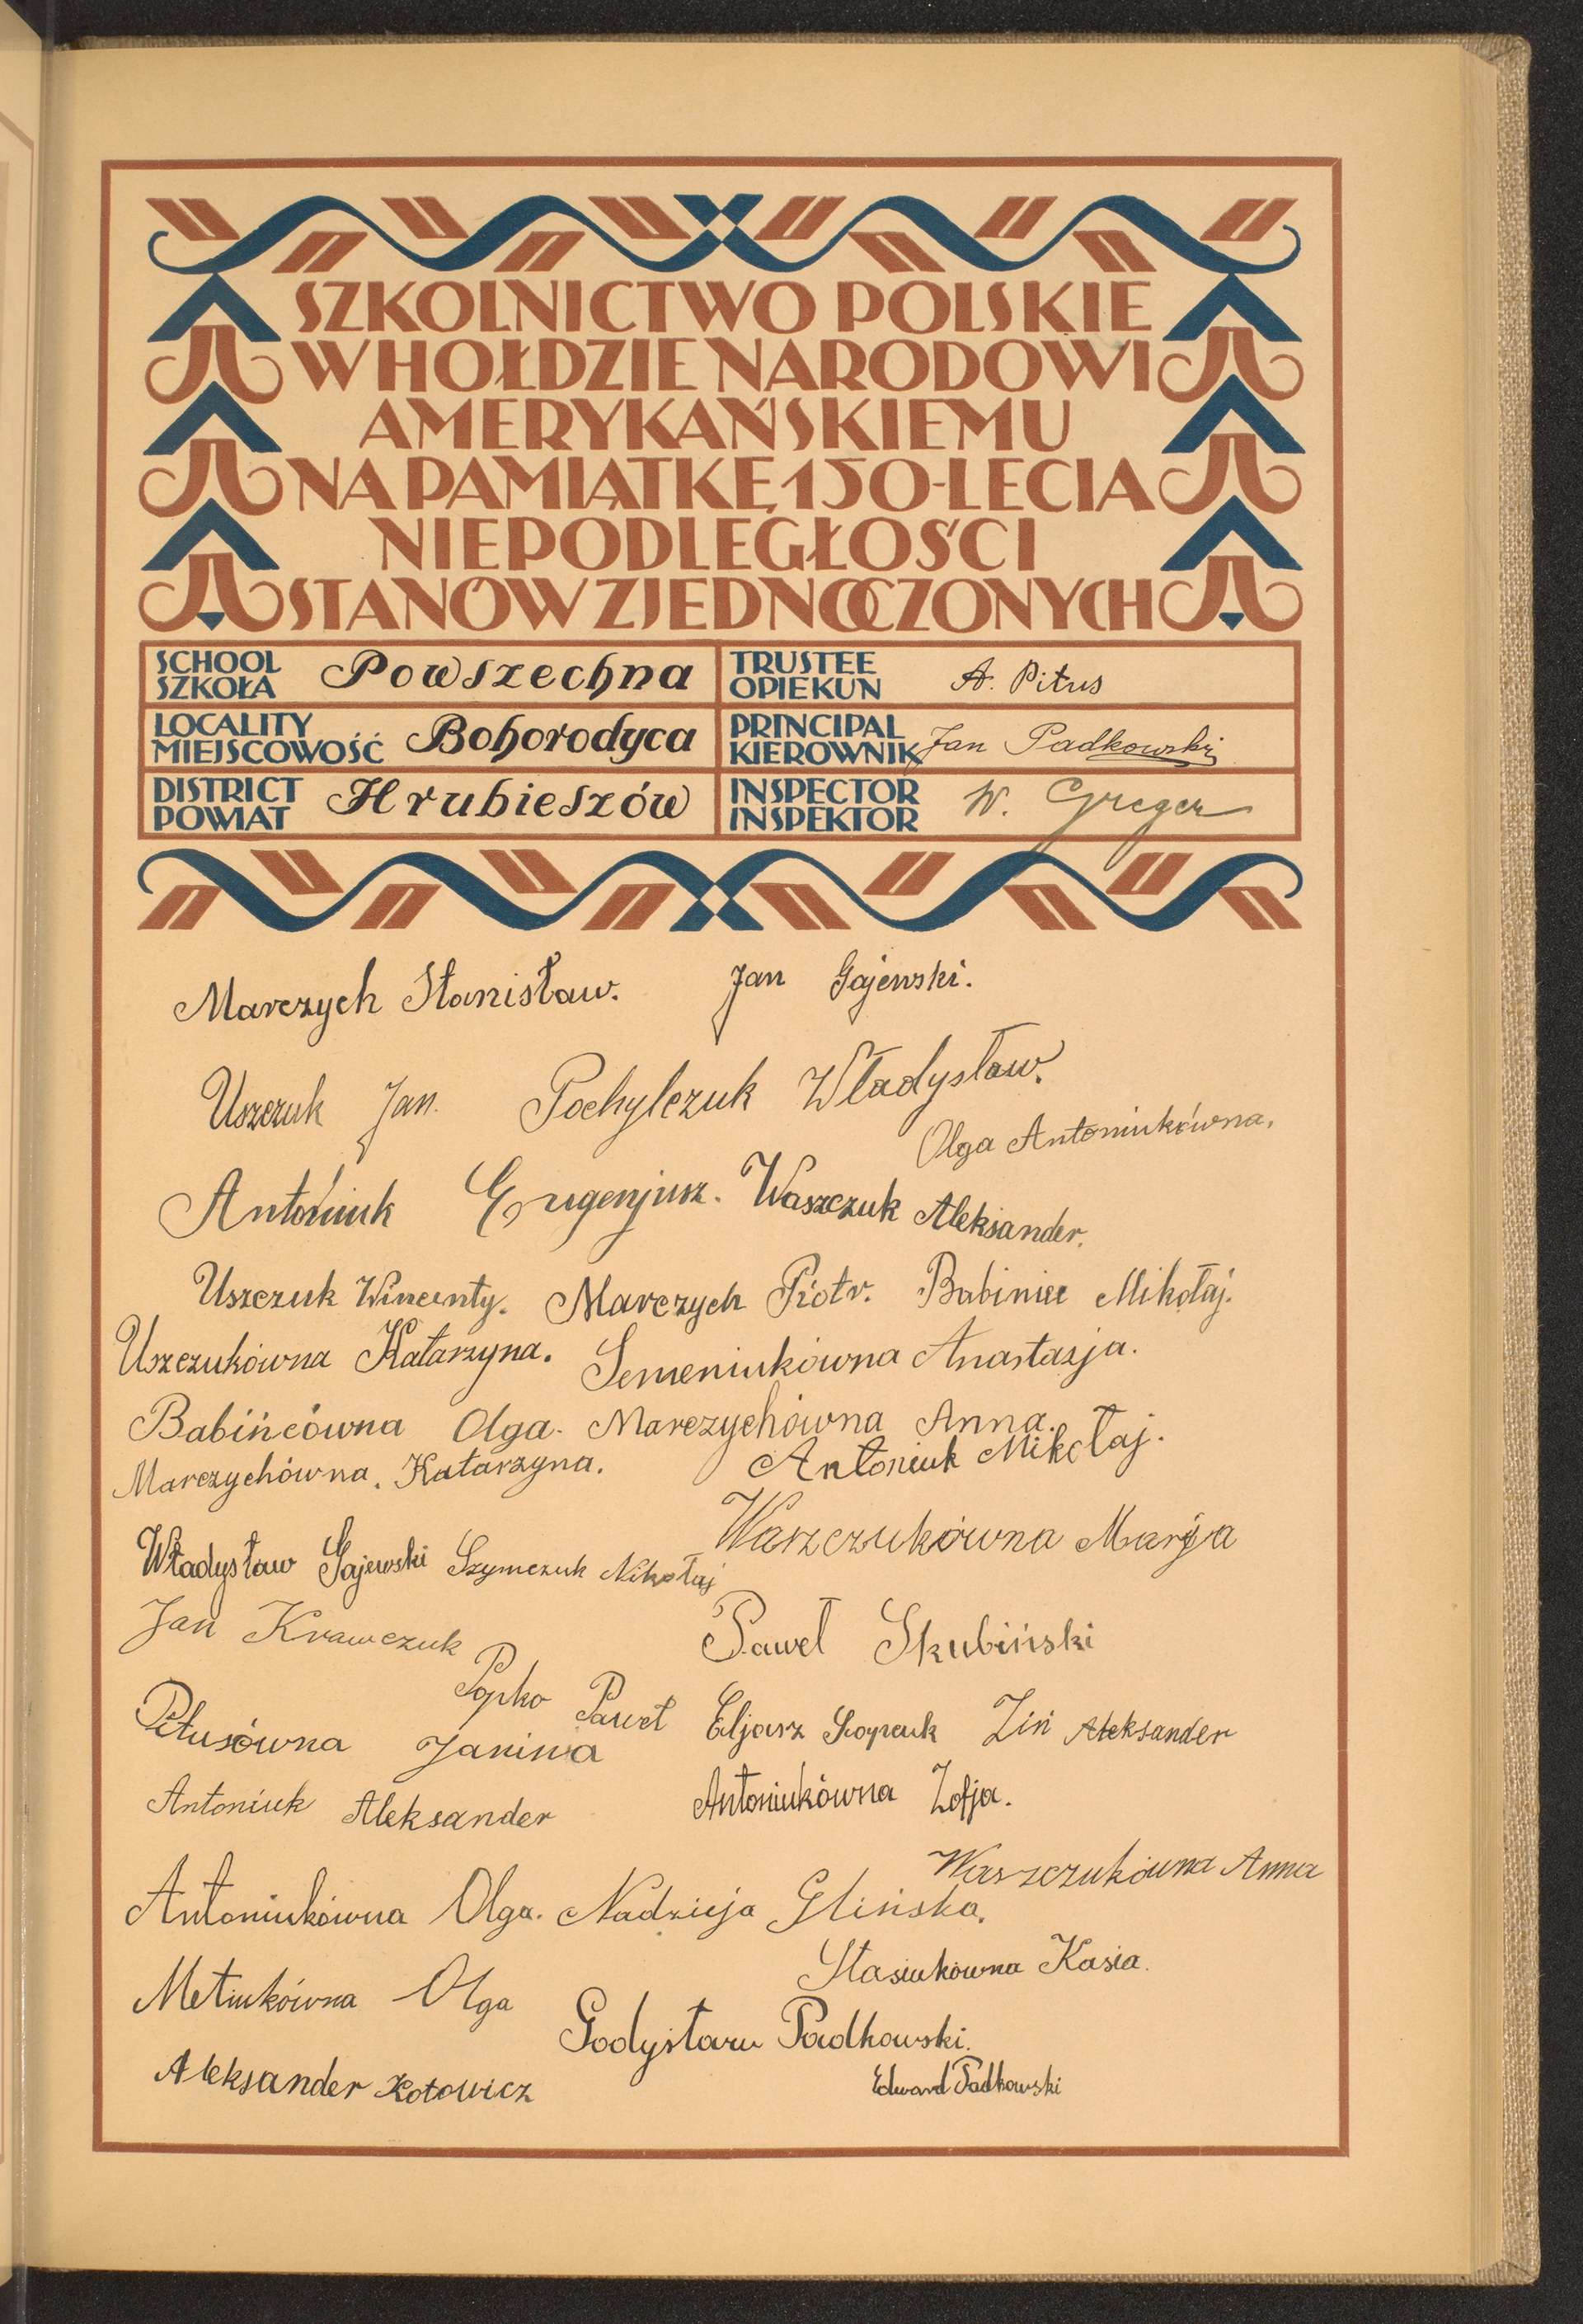 SZKOLNICTWO POLSKIE
W HOŁDZIE NARODOWI
AMERYKAŃSKIEMU
NA PAMIĄTKĘ 150-LECIA
NIEPODLEGŁOŚCI
STANÓW ZJEDNOCZONYCH
SCHOOL
SZKOŁA
Powszechna
TRUSTEE
OPIEKUN
A. Pitus
LOCALITY
MIEJSCOWOŚĆ
Bohorodyca
PRINCIPAL
KIEROWNIK
Jan Padkowski
DISTRICT
POWIAT
Hrubieszów
INSPECTOR
INSPEKTOR
W. Greger
Marczych Stanisław. Jan Gajewski.
Uszczuk Jan. Pochylczuk Władysław.
Olga Antoniukówna,
Antoniuk Eugenjusz. Waszczuk Aleksander.
Uszczuk Wincenty. Marczych Piotr. Babiniec Mikołaj.
Uszczukówna Katarzyna. Semeniukówna Anastazja.
Babińcówna Olga. Marczychówna Anna.
Marczychówna. Katarzyna. Antoniuk Mikołaj.
Waszczukówna Marja
Władysław Gajewski Szymczuk Nikołaj
Jan Krawczuk Paweł Skubiński
Popko Paweł Eljasz Zin Aleksander
Pitusówna Janina
Antoniuk Aleksander Antoniukówna Zofja.
Waszczukówna Anna
Antoniukówna Olga. Nadzieja Glińska.
Stasiukówna Kasia.
Metiukówna Olga
Godysław Padkowski.
Aleksander Kotowicz Edward Padkowski